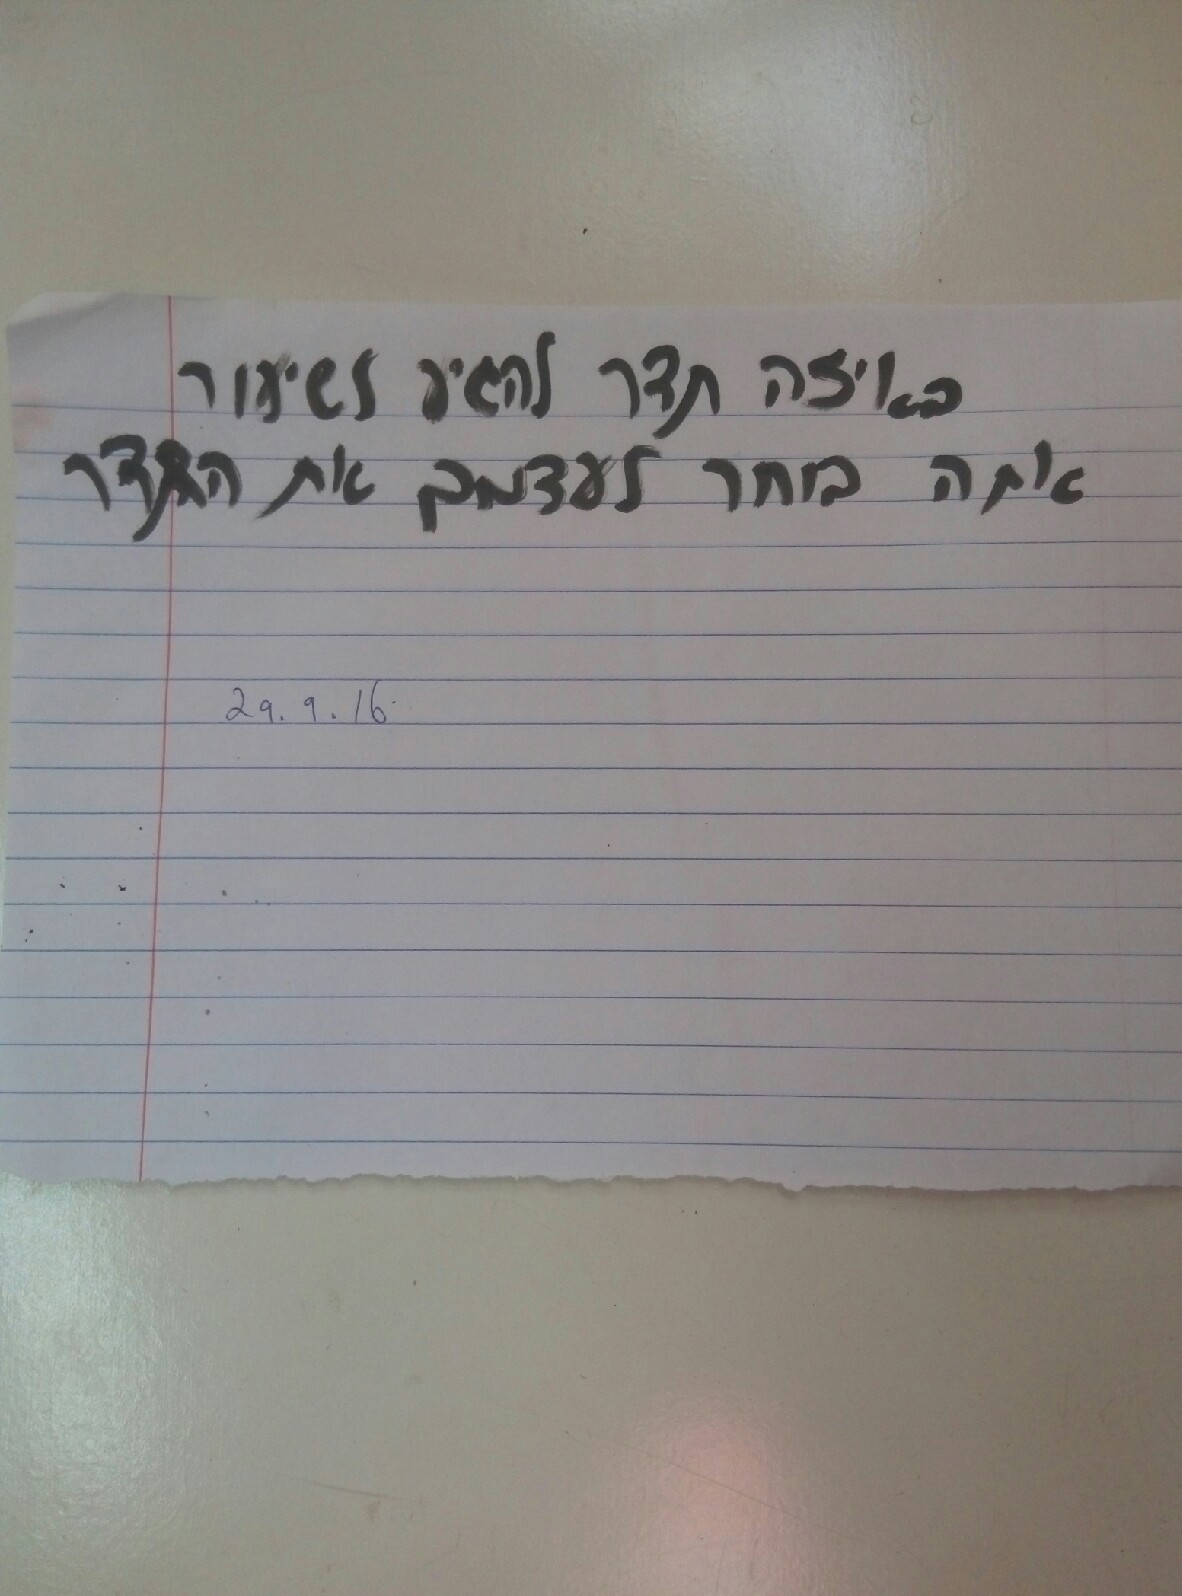 באיזה תדר להגיע לשיעור
אתה בוחר לעצמך את התדר
29.9.16